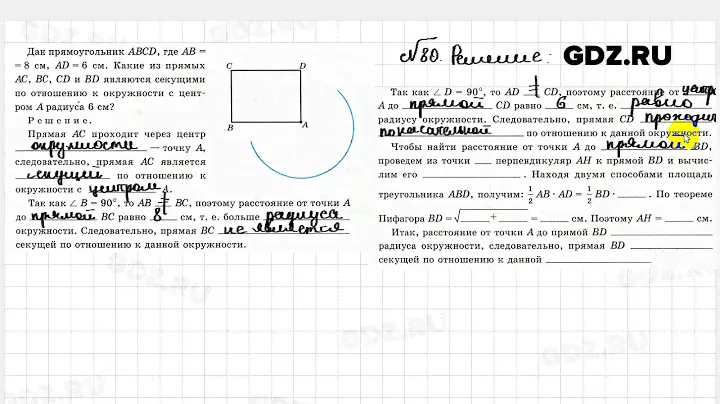 Дан прямоугольник ABCD, где AB =
= 8 см, AD = 6 см. Какие из прямых
AC, BC, CD и BD являются секущими
по отношению к окружности с цент-
ром A радиуса 6 см?
Решение.
Прямая AC проходит через центр
окружности — точку A,
следовательно, прямая AC является
секущей по отношению к
окружности с центром A.
Так как ∠ B = 90°, то AB ⊥ BC, поэтому расстояние от точки A
до прямой BC равно 8 см, т. е. больше радиуса
окружности. Следовательно, прямая BC не является
секущей по отношению к данной окружности.
C D
B A
№80. Решение: GDZ.RU
Так как ∠ D = 90°, то AD ⊥ CD, поэтому расстояние от центра
A до прямой CD равно 6 см, т. е. равно
радиусу окружности. Следовательно, прямая CD проходит
по касательной по отношению к данной окружности.
Чтобы найти расстояние от точки A до прямой BD,
проведем из точки ___ перпендикуляр AH к прямой BD и вычис-
лим его ___. Находя двумя способами площадь
треугольника ABD, получим: 1/2 AB · AD = 1/2 BD · ___. По теореме
Пифагора BD = √ ___ + ___ = ___ см. Поэтому AH = ___ см.
Итак, расстояние от точки A до прямой BD ___
радиуса окружности, следовательно, прямая BD ___
секущей по отношению к данной ___
GDZ.RU
GDZ.RU
GDZ.RU